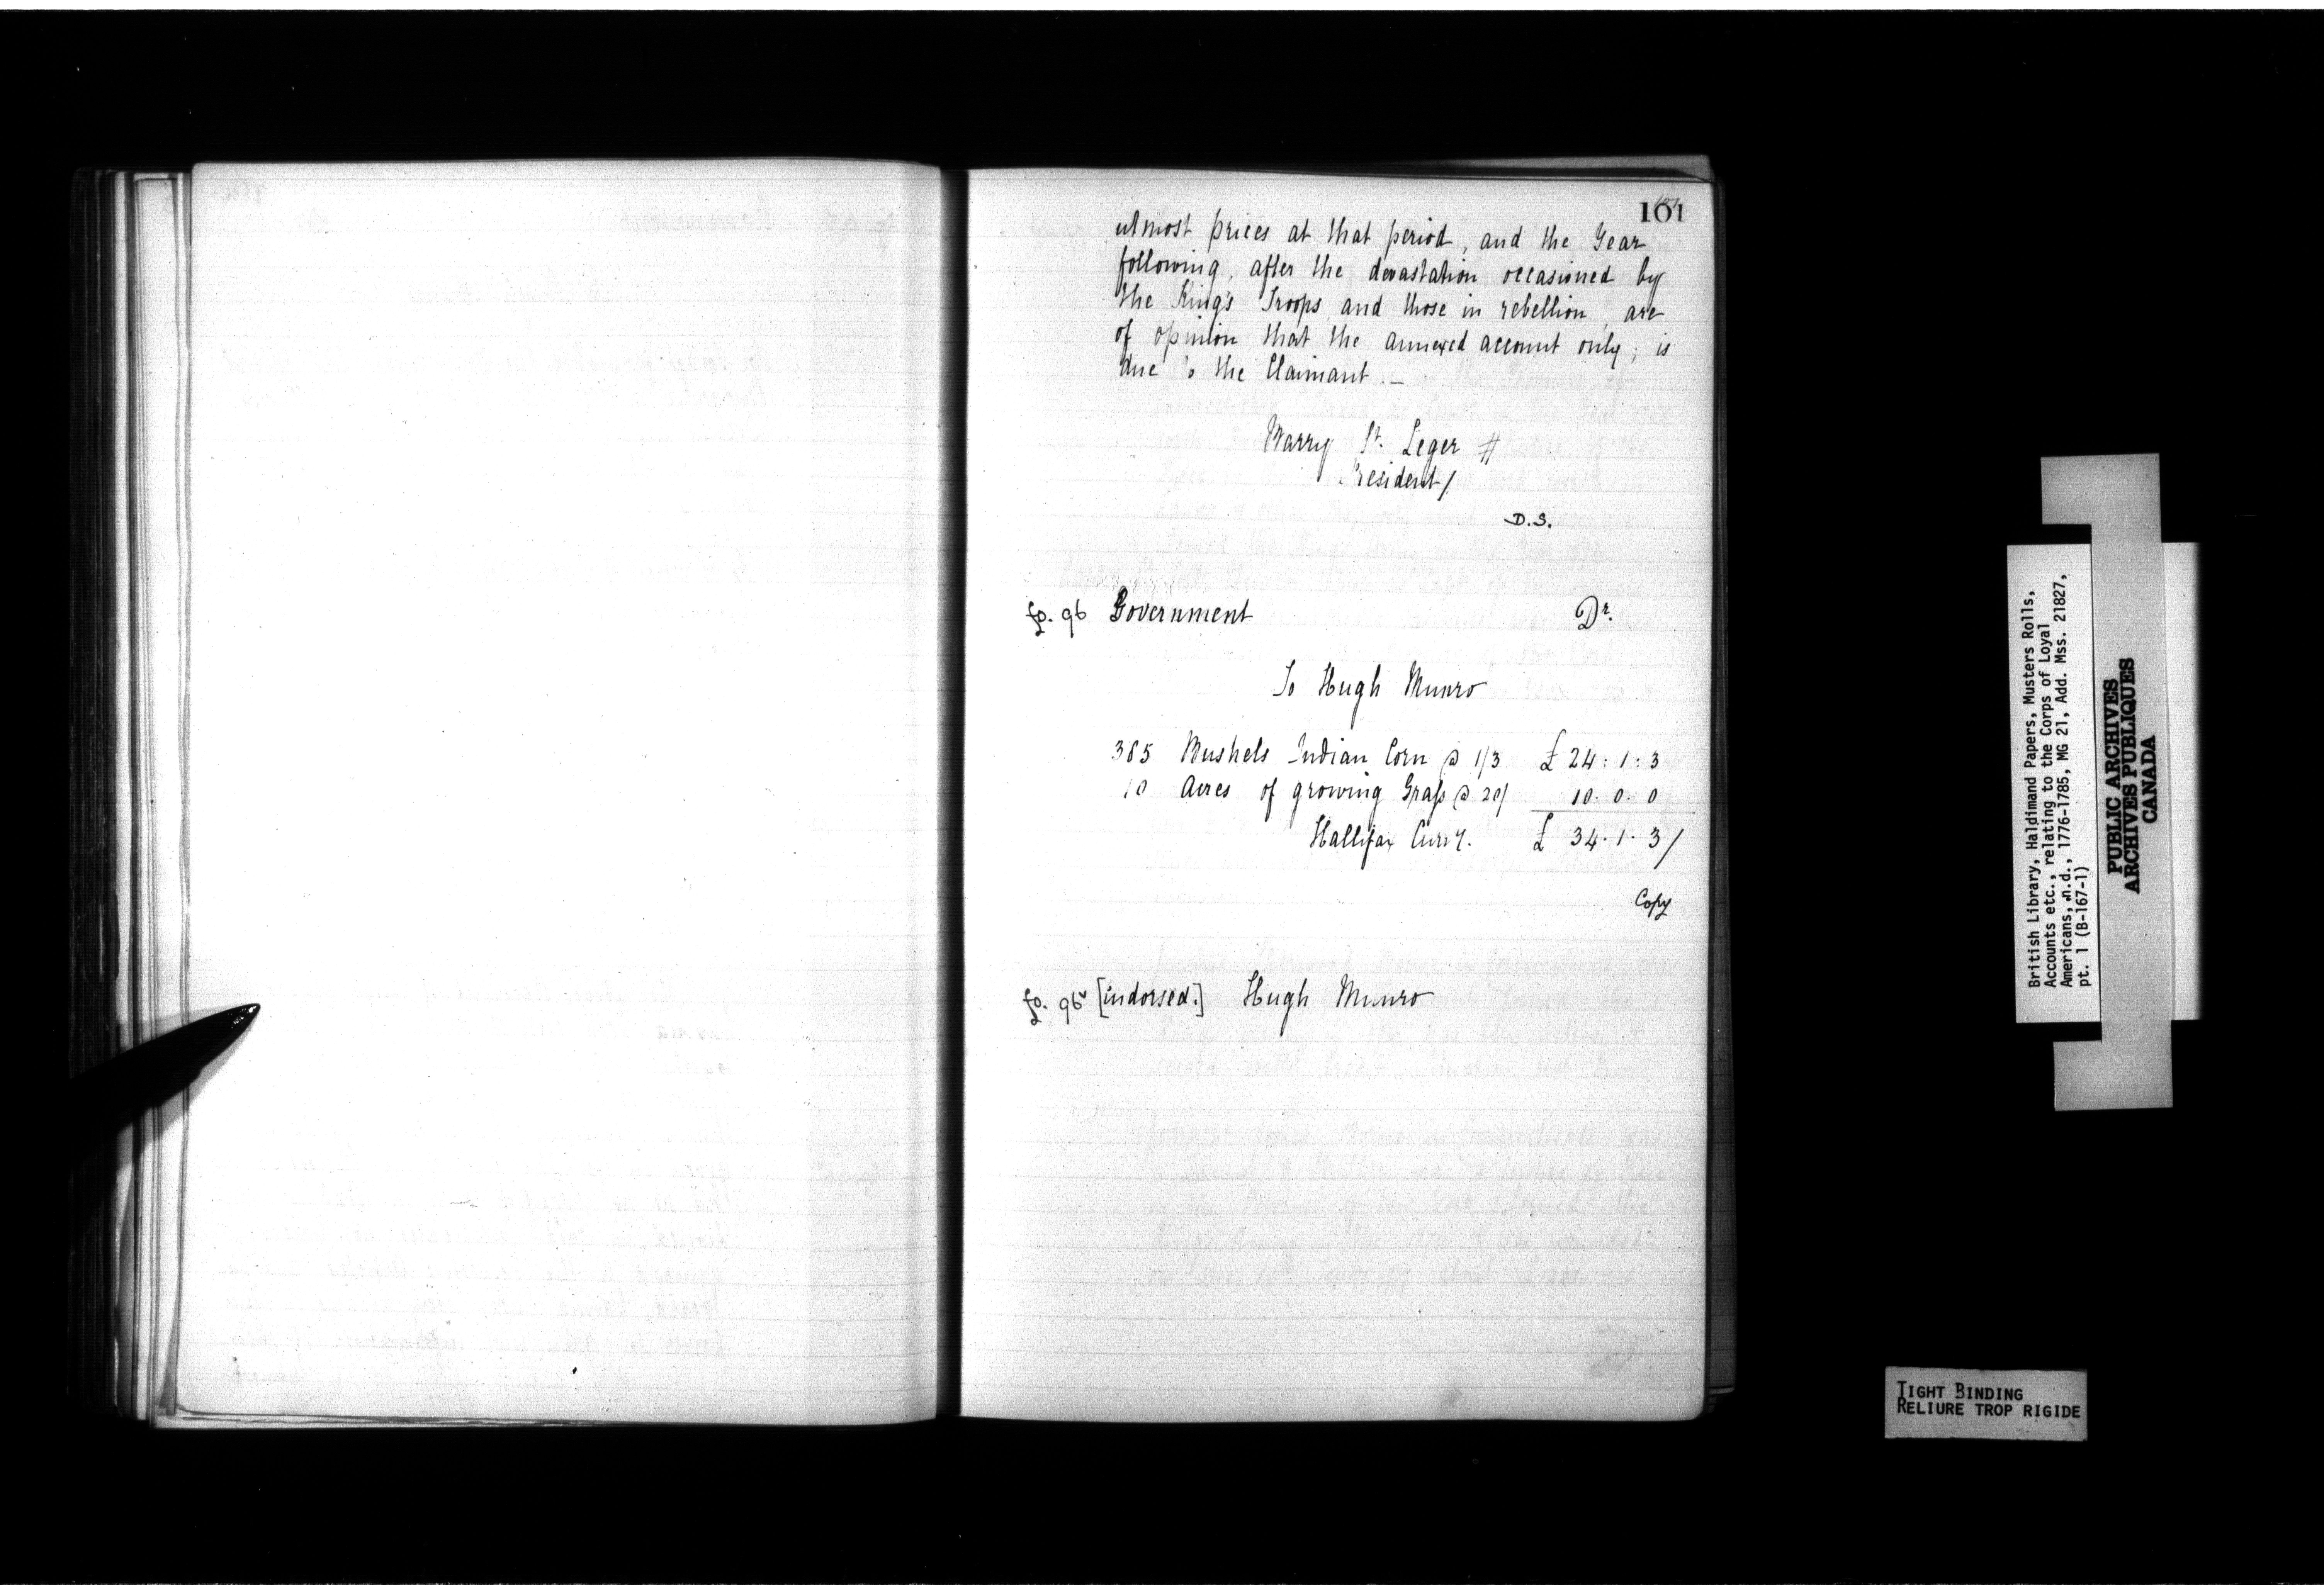 101
utmost prices at that period, and the Year
following, after the devastation occasioned by
the King's Troops, and those in rebellion, are
of opinion that the annexed account only; is
due to the Claimant. —
Barry St. Leger #
President/
D.S.
fo. 96 Government Dr.
To Hugh Munro
385 Bushels Indian Corn @ 1/3 £ 24:1:3
10 Acres of growing Grass @ 20/ 10.0.0
Hallifax Curry. £ 34.1.3/
Copy
fo. 96v [indorsed.] Hugh Munro
British Library, Haldimand Papers, Musters Rolls,
Accounts etc., relating to the Corps of Loyal
Americans, n.d., 1776-1785, MG 21, Add. Mss. 21827,
pt. 1 (B-167-1)
PUBLIC ARCHIVES
ARCHIVES PUBLIQUES
CANADA
TIGHT BINDING
RELIURE TROP RIGIDE